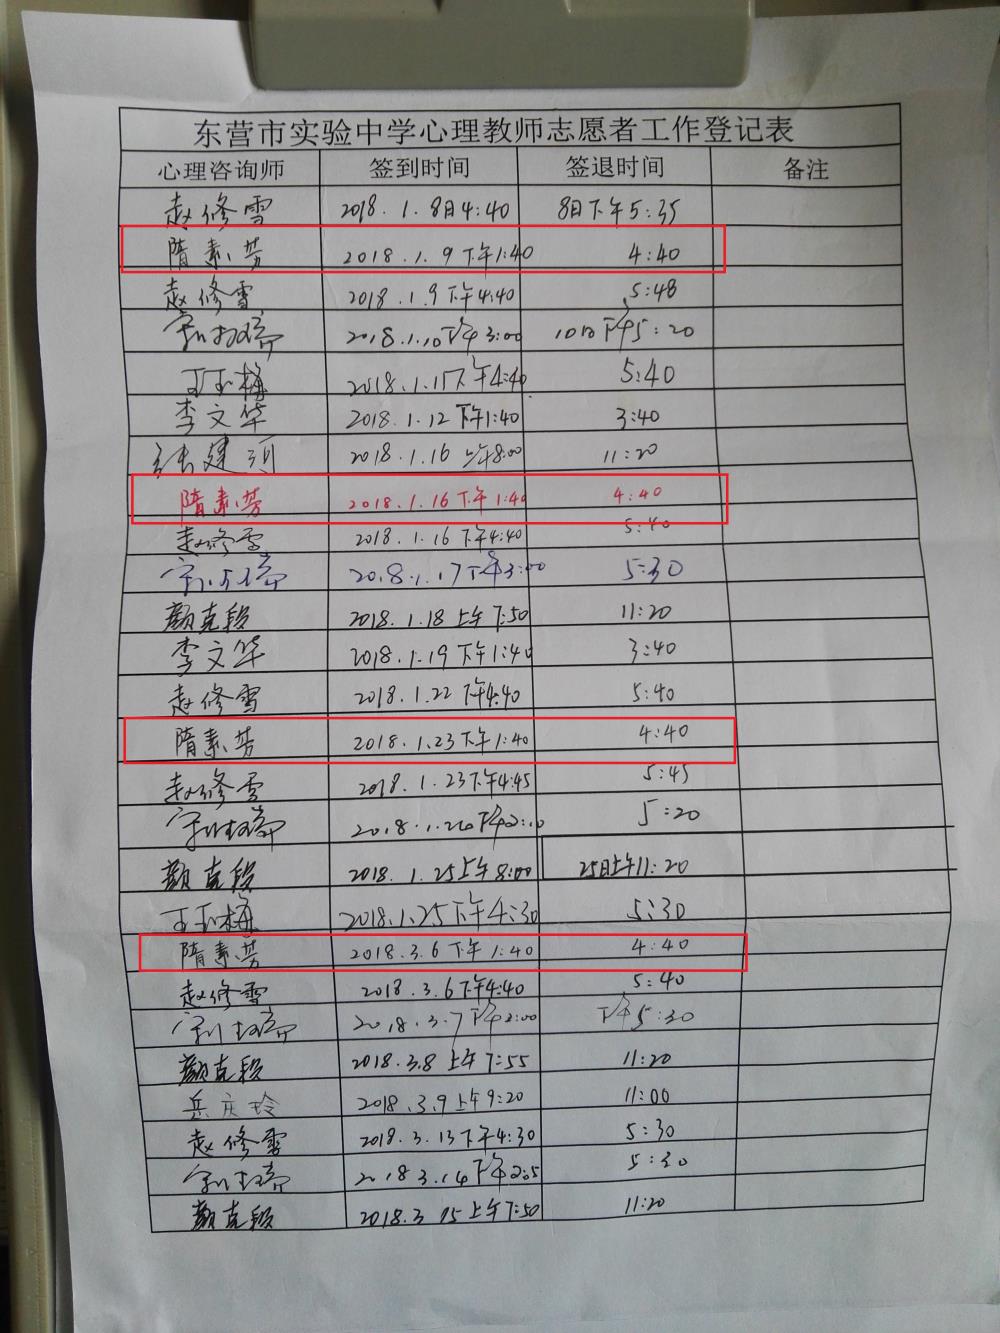 东营市实验中学心理教师志愿者工作登记表
心理咨询师 签到时间 签退时间 备注
赵修雪 2018.1.8日4:40 8日下午5:35
隋素芳 2018.1.9下午1:40 4:40
赵修雪 2018.1.9下午4:40 5:48
2018.1.10下午3:00 10日下午5:20
王玉梅 2018.1.15下午4:40 5:40
李文华 2018.1.12下午1:40 3:40
张建 2018.1.16上午8:00 11:20
隋素芳 2018.1.16下午1:40 4:40
赵修雪 2018.1.16下午4:40 5:40
2018.1.17下午3:00 5:30
颜克段 2018.1.18上午7:50 11:20
李文华 2018.1.19下午1:40 3:40
赵修雪 2018.1.22下午4:40 5:40
隋素芳 2018.1.23下午1:40 4:40
赵修雪 2018.1.23下午4:45 5:45
5:20
颜克段 2018.1.25上午8:00 25日上午11:20
王玉梅 2018.1.25下午4:30 5:30
隋素芳 2018.3.6下午1:40 4:40
赵修雪 2018.3.6下午4:40 5:40
2018.3.7下午2:00 下午5:30
颜克段 2018.3.8上午7:55 11:20
岳庆玲 2018.3.9上午9:20 11:00
赵修雪 2018.3.13下午4:30 5:30
2018.3.14下午 5:30
颜克段 2018.3.15上午7:50 11:20